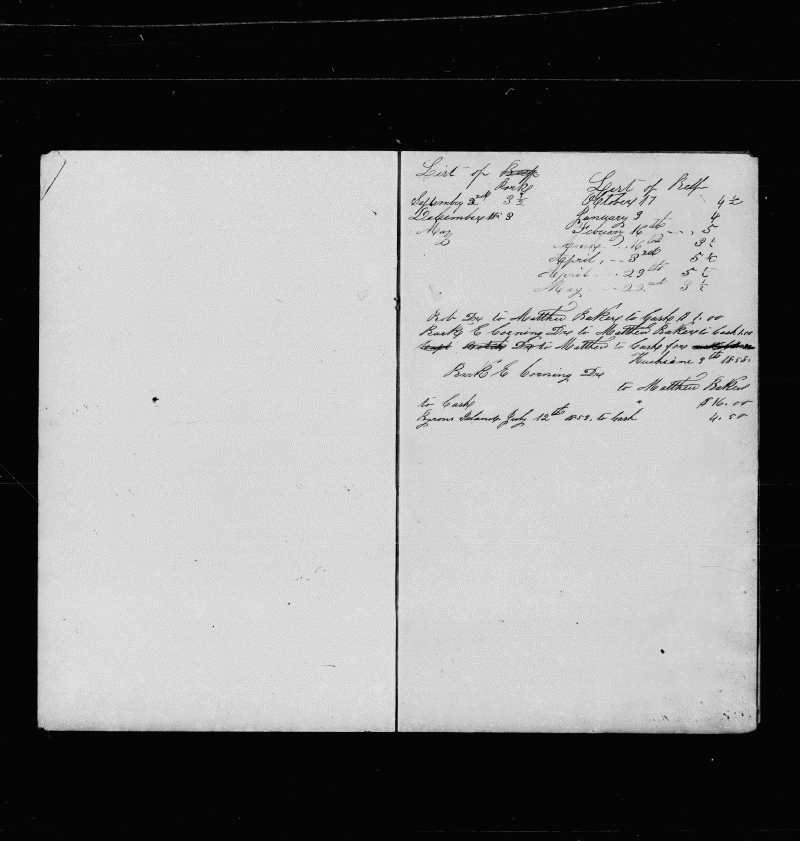 List of Beef
Pork
September 2nd 3 1/2
December 18 3
May
List of Beff
October 17 4 1/2
January 9 4
Febuary 16th 5
March 16 3 1/2
April 3rd 5 1/2
April 29th 5 1/2
May 22nd 3 1/2
Rob Dr to Matthew Baker to Cash $1.00
Bark E Corning Dr to Matthew Baker to Cash 1.00
Dr to Matthew to Cash for
9th 1858
Bark E Corning Dr
to Matthew Baker
to Cash $16.00
Byrons Island July 12th 1859. to Cash 4.50